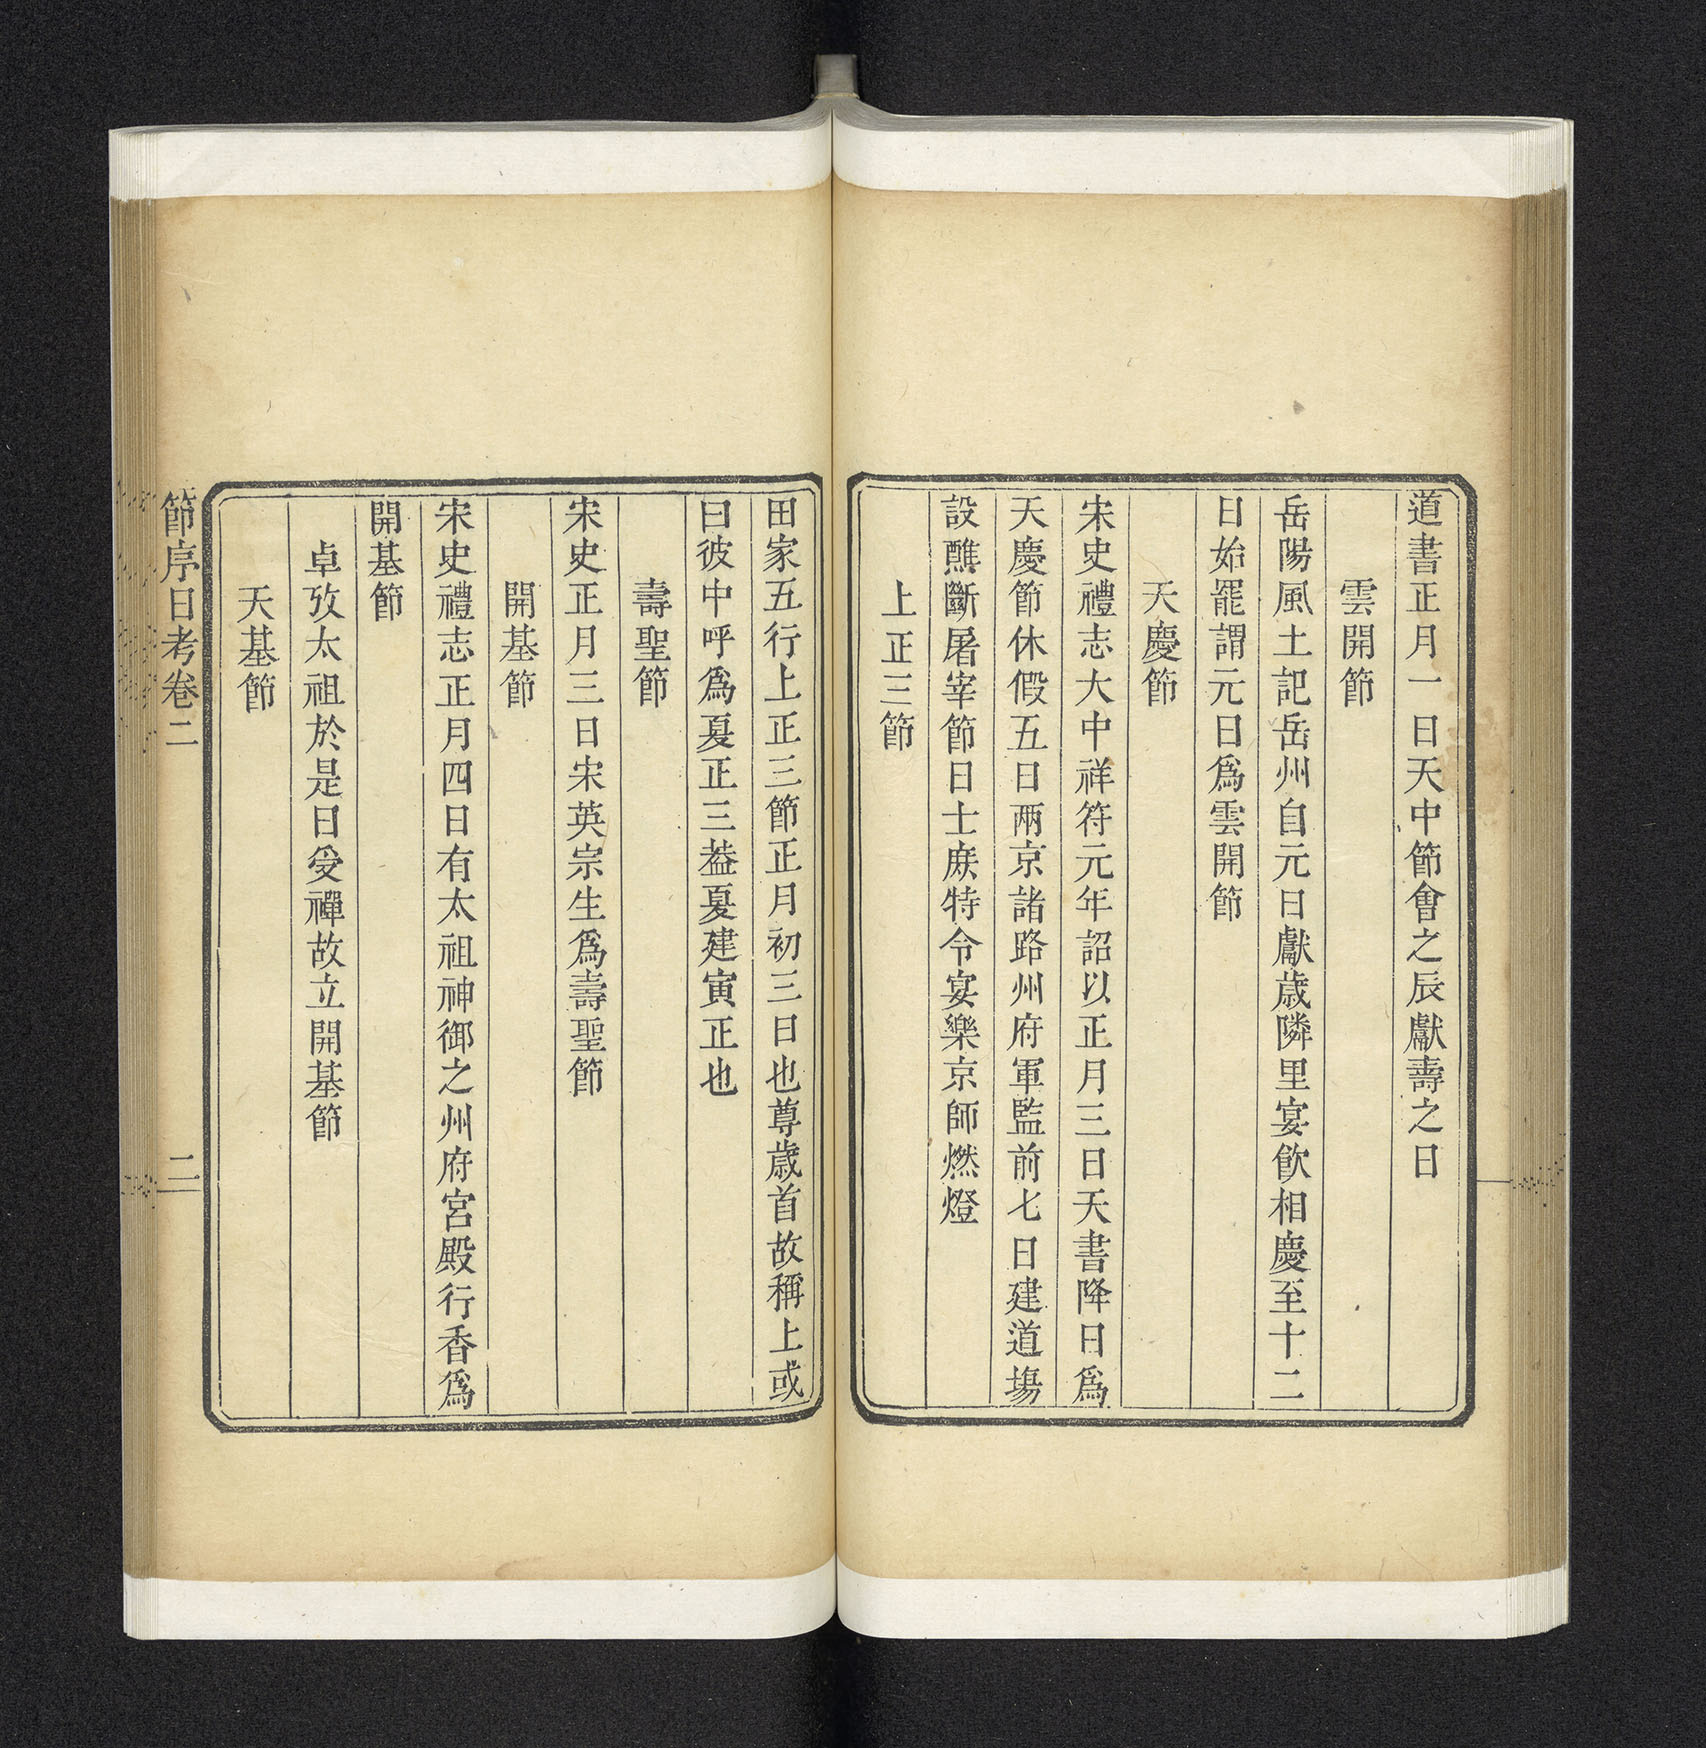 道書正月一日天中節會之辰獻壽之日
雲開節
岳陽風土記岳州自元日獻歲隣里宴飮相慶至十二
日始罷謂元日爲雲開節
天慶節
宋史禮志大中祥符元年詔以正月三日天書降日爲
天慶節休假五日兩京諸路州府軍監前七日建道場
設醮斷屠宰節日士庶特令宴樂京師燃燈
上正三節
田家五行上正三節正月初三日也尊歲首故稱上或
曰彼中呼爲夏正三葢夏建寅正也
壽聖節
宋史正月三日宋英宗生爲壽聖節
開基節
宋史禮志正月四日有太祖神御之州府宮殿行香爲
開基節
卓攷太祖於是日受禪故立開基節
天基節
節序日考卷二
二